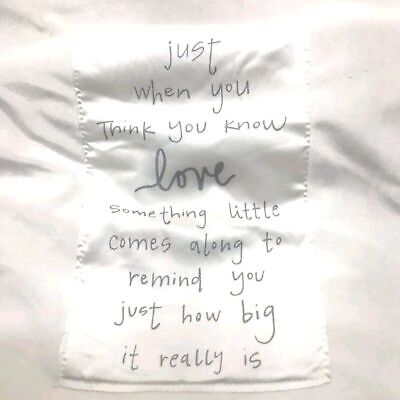 just
when you
Think you know
love
something little
comes along to
remind you
just how big
it really is